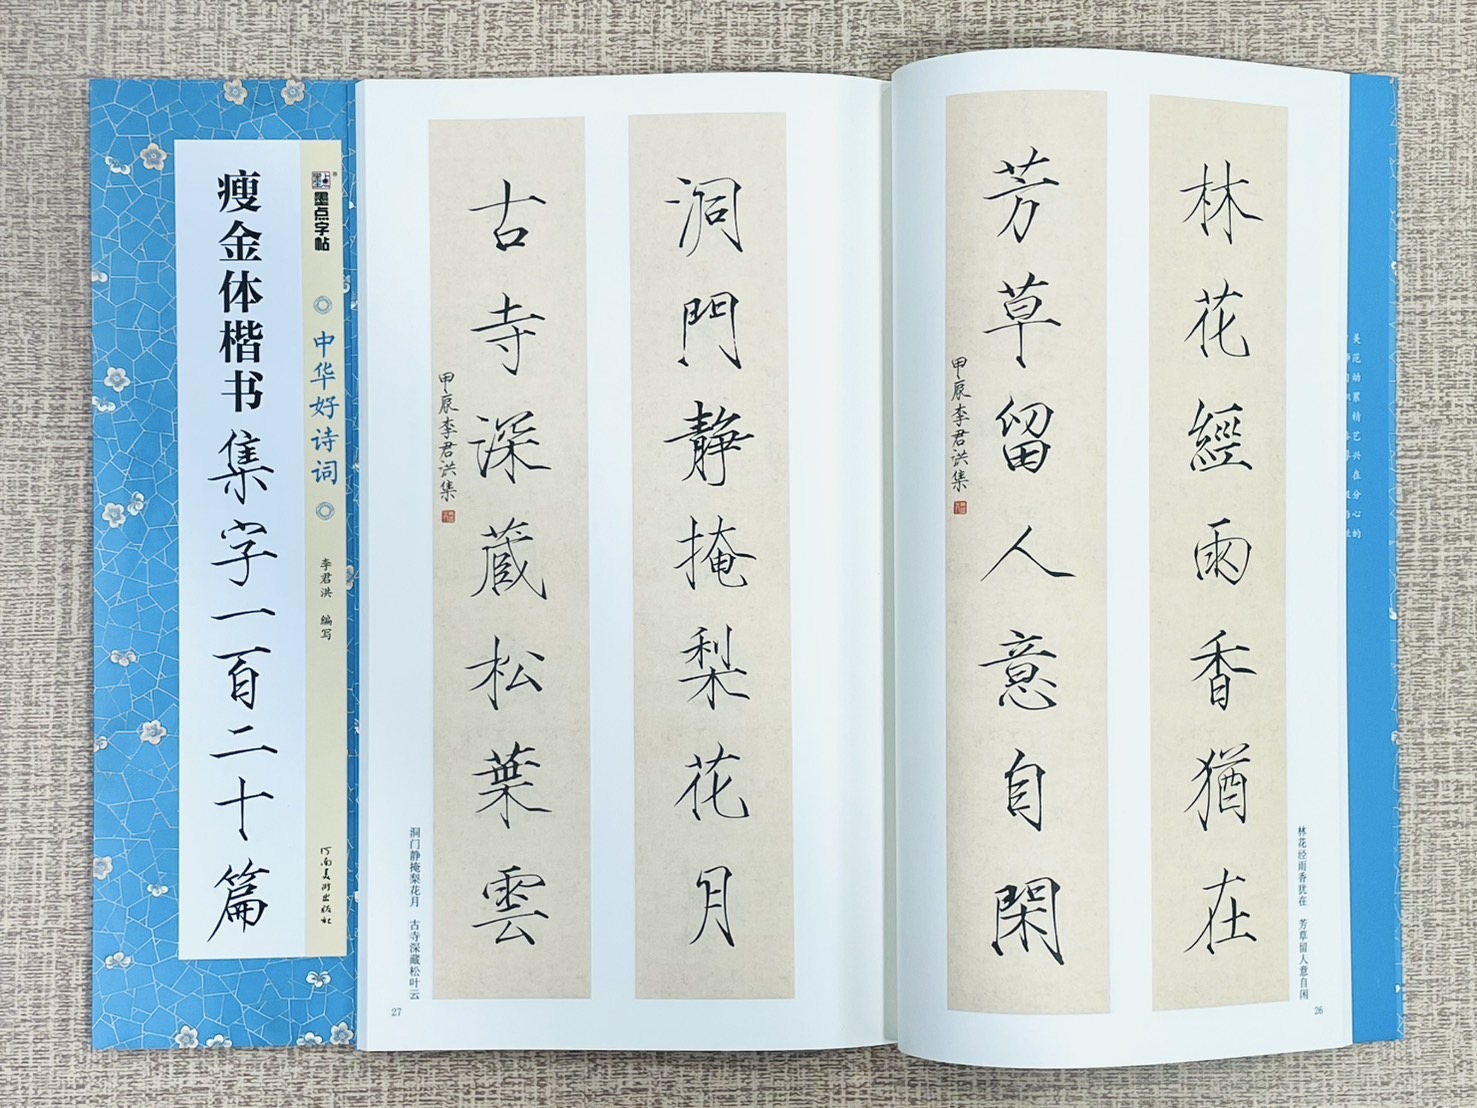 瘦金体楷书集字一百二十篇
墨点字帖
中华好诗词
李君洪 编写
河南美术出版社
林花經雨香猶在
芳草留人意自閑
甲辰李君洪集
林花经雨香犹在 芳草留人意自闲
26
洞門靜掩梨花月
古寺深蔵松葉雲
甲辰李君洪集
洞门静掩梨花月 古寺深藏松叶云
27